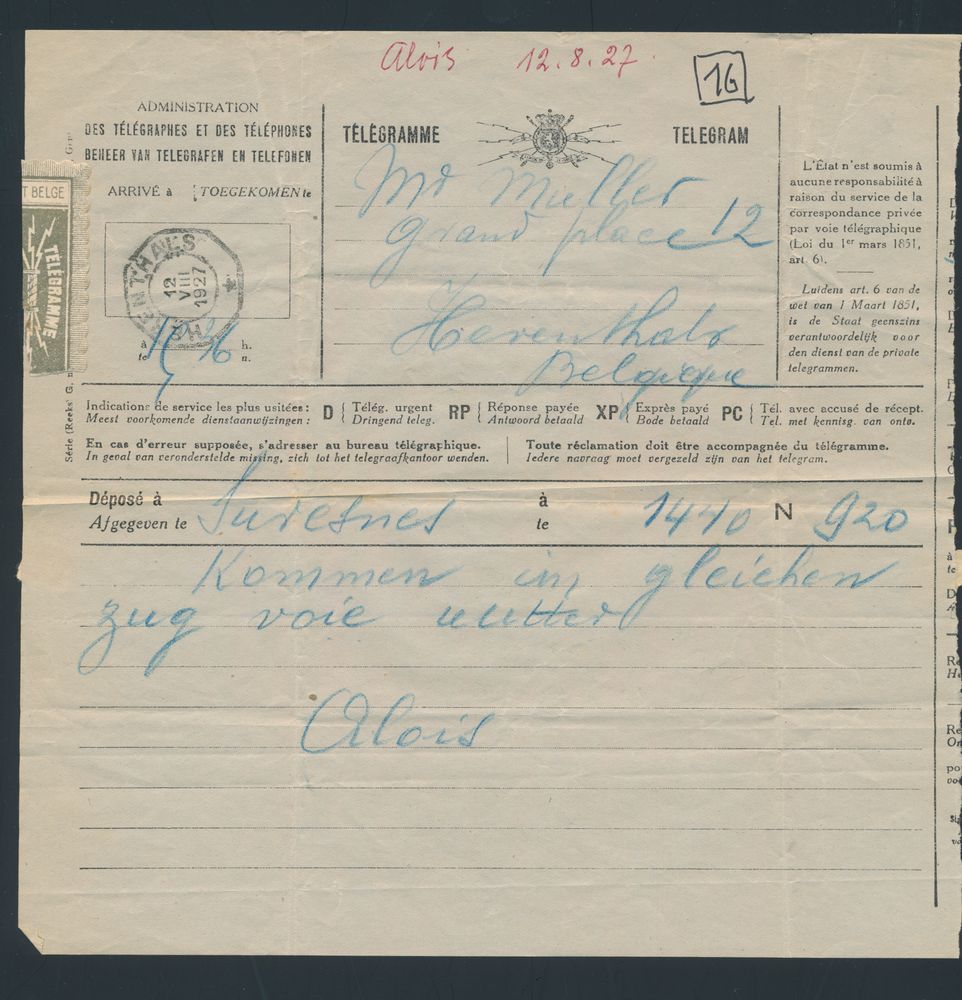 Alois 12.8.27
16
ADMINISTRATION
DES TÉLÉGRAPHES ET DES TÉLÉPHONES
BEHEER VAN TELEGRAFEN EN TELEFONEN
ARRIVÉ à TOEGEKOMEN te
T BELGE
TÉLÉGRAMME
HERENTHALS
12
VIII
1927
à h.
te n.
Série (Reeks) G.
TÉLÉGRAMME TELEGRAM
Mr Muller
Grand place 12
Herenthals
Belgique
L'État n'est soumis à
aucune responsabilité à
raison du service de la
correspondance privée
par voie télégraphique
(Loi du 1er mars 1851,
art. 6).
Luidens art. 6 van de
wet van 1 Maart 1851,
is de Staat geenszins
verantwoordelijk voor
den dienst van de private
telegrammen.
Indications de service les plus usitées: D { Télég. urgent RP { Réponse payée XP { Exprès payé PC { Tél. avec accusé de récept.
Meest voorkomende dienstaanwijzingen: Dringend teleg. Antwoord betaald Bode betaald Tel. met kennisg. van ontv.
En cas d'erreur supposée, s'adresser au bureau télégraphique. Toute réclamation doit être accompagnée du télégramme.
In geval van veronderstelde missing, zich tot het telegraafkantoor wenden. Iedere navraag moet vergezeld zijn van het telegram.
Déposé à Suresnes à 1440 N 920
Afgegeven te te
Kommen im gleichen
zug voie mutter
Alois